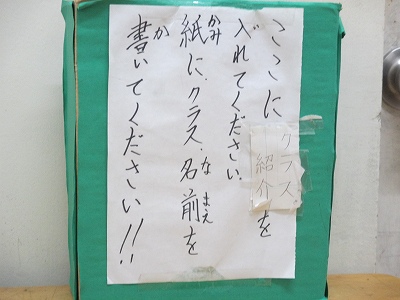 ここに クラス紹介を
入れてください。
紙に、クラス、名前を
書いてください!!